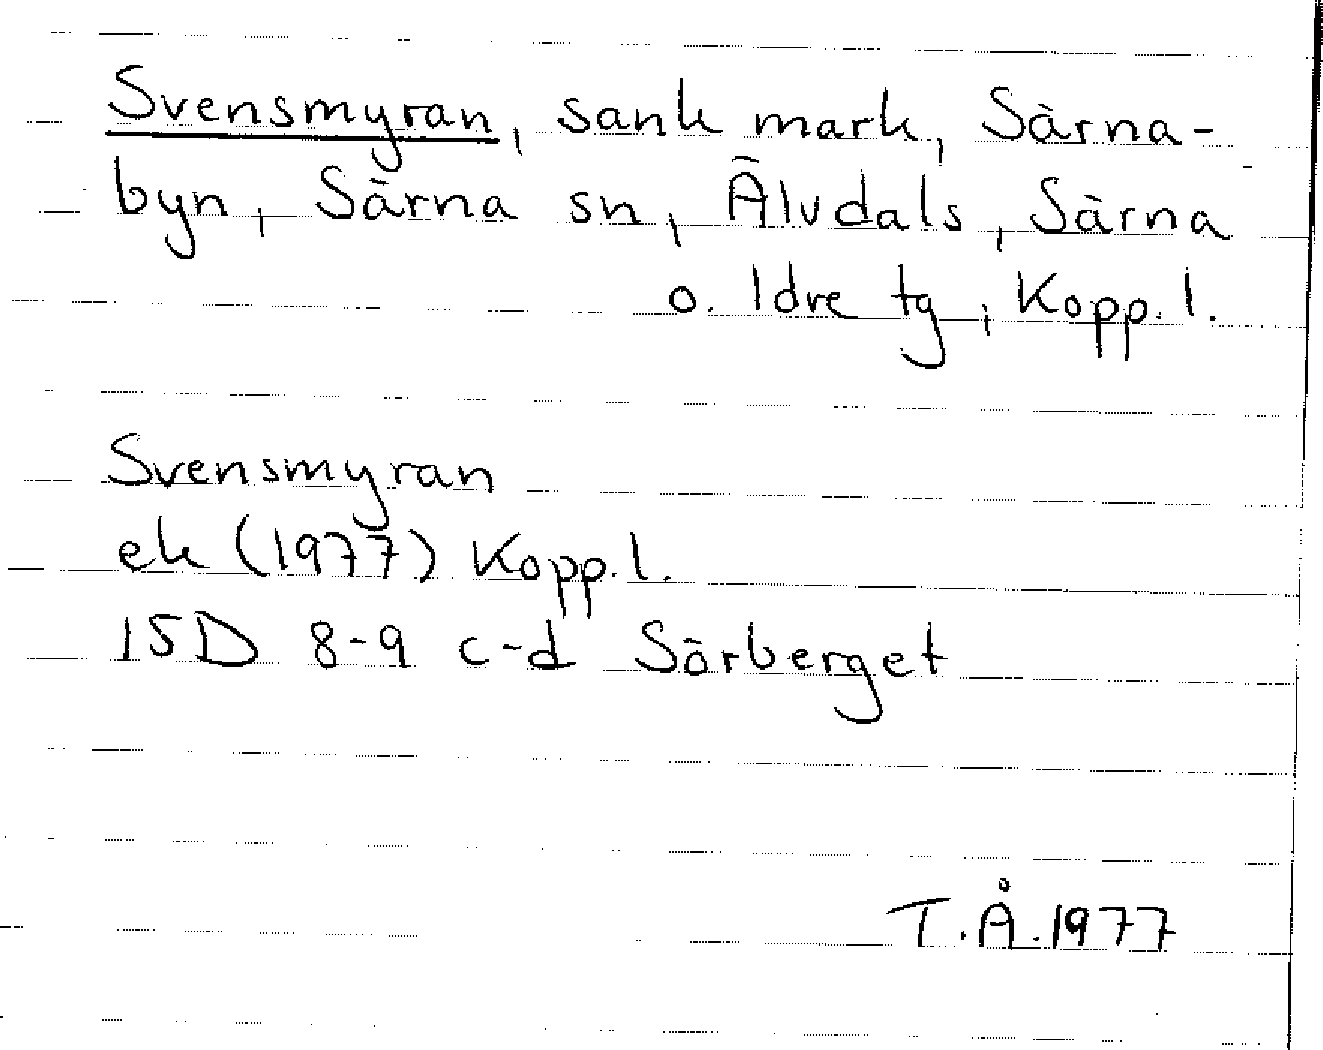 Svensmyran, sank mark, Särna-
byn, Särna sn, Älvdals, Särna
o. Idre tg, Kopp. l.
Svensmyran
ek (1977) Kopp. l.
15D 8-9 c-d Sörberget
T.Å.1977